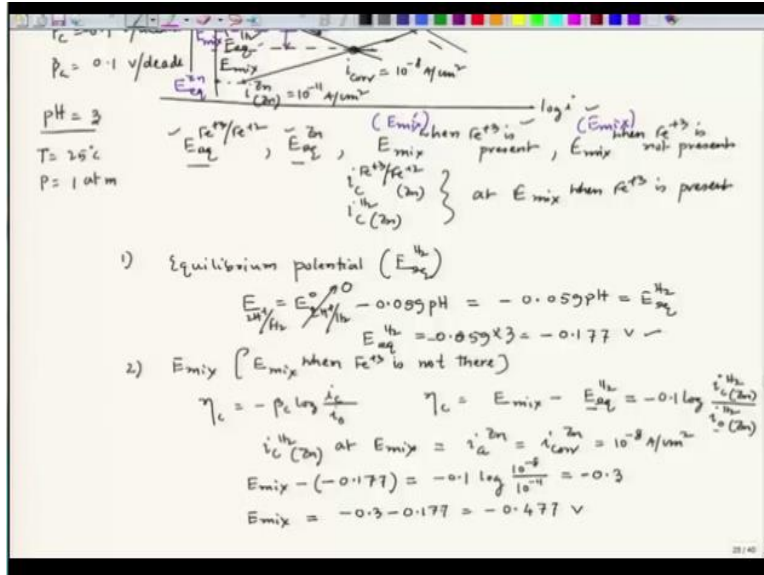 βc = 0.1 v/decade
E mix
Eeq
Emix
E eq Zn
i (Zn) Zn = 10^-11 A/cm²
i corr = 10^-8 A/cm²
log i
pH = 3
T = 25°c
P = 1 atm
E eq Fe+3/Fe+2 , E eq Zn , E mix (Emix) when Fe+3 is present , E mix (Emix) when Fe+3 is not present
i c Fe+3/Fe+2 (Zn)
i c H2 (Zn) } at E mix when Fe+3 is present
1) Equilibrium potential (E eq H2)
E 2H+/H2 = E° 2H+/H2 0 - 0.059 pH = - 0.059 pH = E eq H2
E eq H2 = -0.059 x 3 = - 0.177 V
2) Emix [Emix when Fe+3 is not there]
ηc = - βc log ic/io   ηc = Emix - E eq H2 = -0.1 log i c H2 (Zn) / i o H2 (Zn)
i c H2 (Zn) at Emix = i a Zn = i corr Zn = 10^-8 A/cm²
Emix - (-0.177) = -0.1 log 10^-8/10^-11 = -0.3
Emix = -0.3 - 0.177 = - 0.477 V